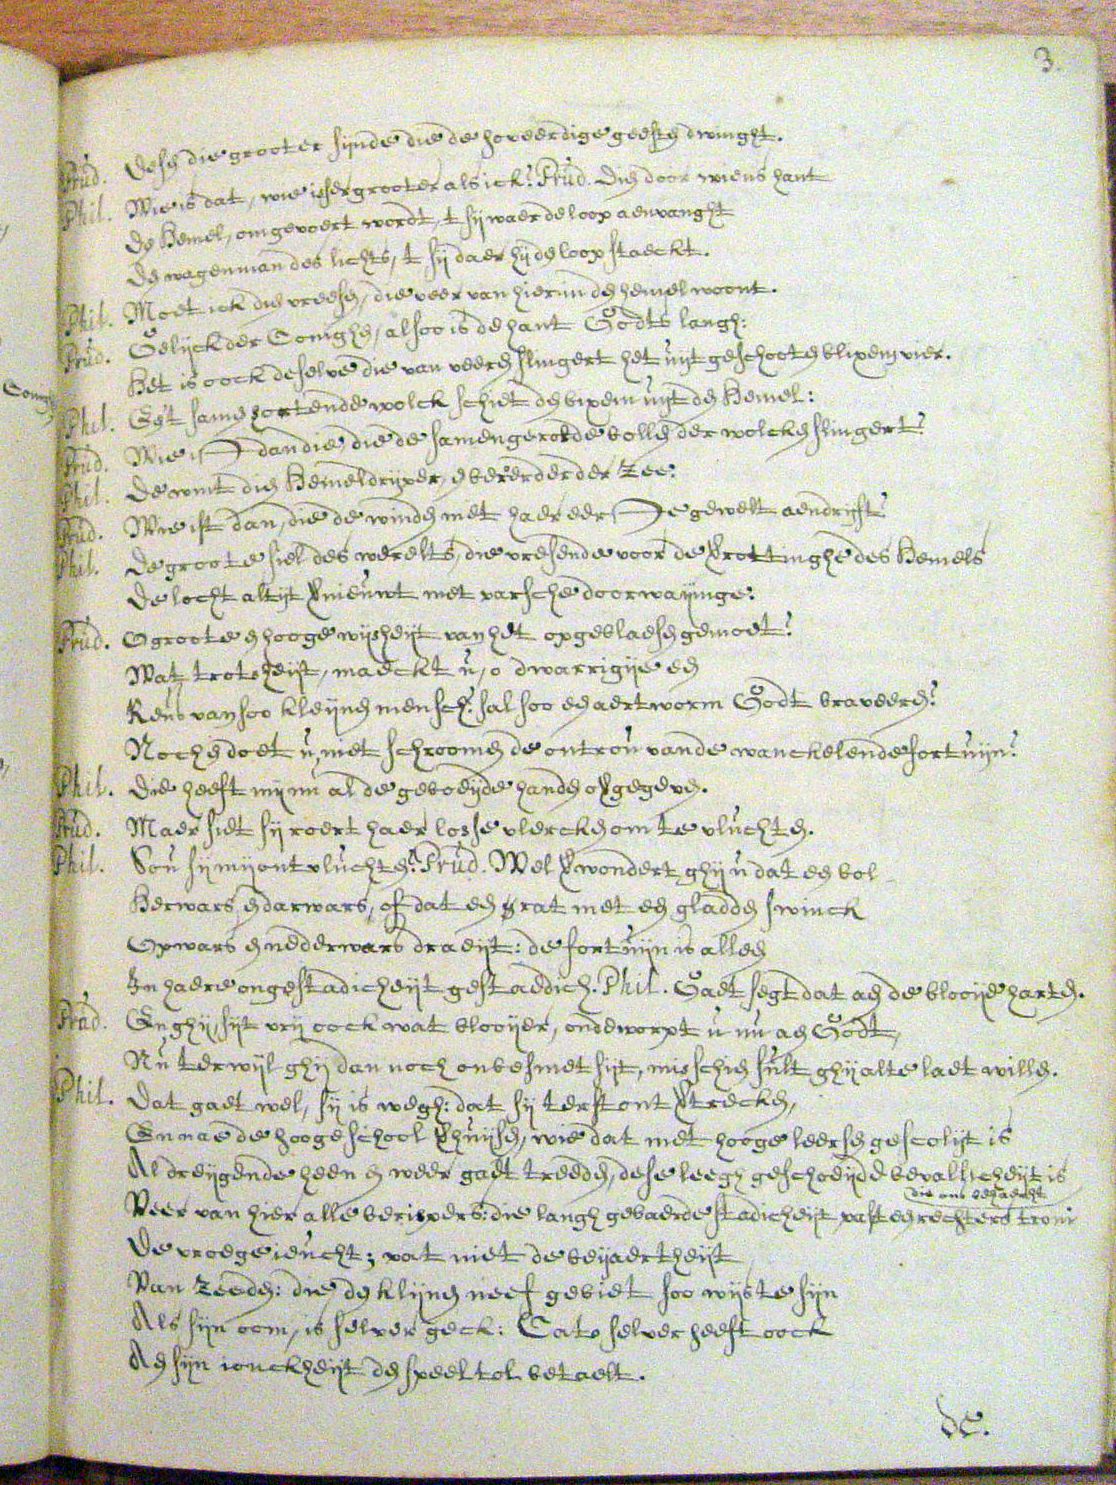 3.
Prud. Desen die grooter sijnde die de hoveerdige geesten dwinght.
Phil. Wie is dat, wie isser grooter als ick? Prud. Dien door wiens hant
De Hemel, omgevoert wordt, t sij waer de loop aenvanght
De wagenman des lichts, t sij daer hij den loop staeckt.
Phil. Moet ick dien vreesen, die veer van hier in den hemel woont.
Prud. Gelijck der Coninghen, alsoo is de hant Godts langh:
Het is oock deselve die van veeren slingert het uijt geschooten blixem vier.
Phil. Een't samen hortende wolck schiet den blixem uijt den Hemel:
Prud. Wie is dan die, die de samengerolde bollen der wolcken slingert?
Phil. De wint dien Hemeldrijver, en beroerder der zee:
Prud. Wie ist dan, die de winden met haer eer gewelt aendrijft?
Phil. De groote siel des werelts, die vresende voor de Vrottinghe des Hemels
De locht altijt Vnieuwt met varsche doorwaijinge:
Prud. O groote en hooge wijsheijt van het opgeblaesen gemoet!
Wat trotsheijt, maeckt u, o dwarrigije een
Reus van soo kleijnen mensch? sal soo een aertworm Godt braveeren?
Noch en doet u, niet schroomen de ontrou vande wanckelende fortuijn?
Phil. Die heeft mij nu al de geboeijde handen opgegeven.
Prud. Maer siet sij roert haer losse vlercken om te vluchten.
Phil. Sou sij mij ontvluchten? Prud. Wel Vwondert ghij u dat een bol
Herwars, en darwars, of dat een rat met een gladden swinck
Opwars en nedderwars draeijt: de fortuijn is alleen
In haere ongestadicheijt gestaedich. Phil. Gaet segt dat aen de blooije harten.
Prud. En ghij, sijt vrij oock wat blooijer, onderworpt u nu aen Godt,
Nu terwijl ghij dan noch onbesmet sijt, misschien sult ghij alte laet willen.
Phil. Dat gaet wel, sij is wegh: dat sij terstont Vtrecken,
En nae de hooge school Vhuijsen, wie dat met hooge leersen gescolijt is
Al dreijgende heen en weer gaet treeden, dese leegh geschoeijde bevallicheijt is
Veer van hier alle berispers: die langh gebaerde stadicheijt past een rechters troni
die ons verwacht
De vroege ieucht; vat niet de bejaertheijt
Van zeeden: die den klijnen neef gebiet soo wijs te sijn
Als sijn oom, is selver geck: Cato selver heeft oock
Aen sijn ionckheijt den speeltol betaelt.
de.